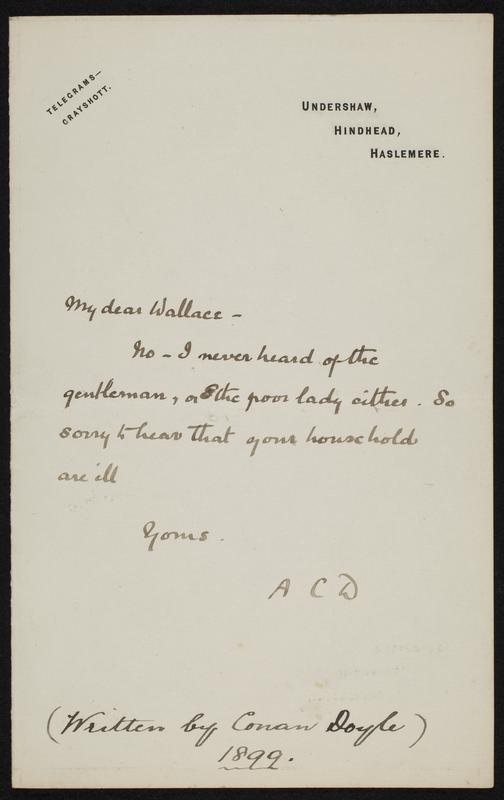 TELEGRAMS—
GRAYSHOTT.
UNDERSHAW,
HINDHEAD,
HASLEMERE.
My dear Wallace –
No – I never heard of the
gentleman, or the poor lady either. So
sorry to hear that your household
are ill
Yours.
A C D
(Written by Conan Doyle)
1899.